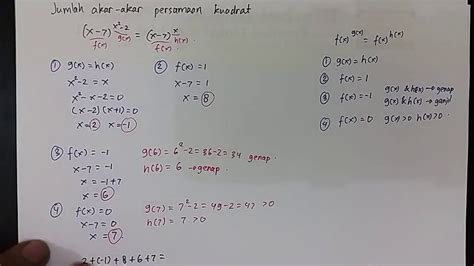 Jumlah akar-akar persamaan kuadrat
(x-7)^(x²-2) = (x-7)^x
f(x) g(x) f(x) h(x)
f(x)^g(x) = f(x)^h(x)
① g(x) = h(x)
② f(x) = 1
③ f(x) = -1 g(x) & h(x) → genap
g(x) & h(x) → ganjil
④ f(x) = 0 g(x) > 0 h(x) > 0
① g(x) = h(x)
x² - 2 = x
x² - x - 2 = 0
(x-2)(x+1) = 0
x = 2 x = -1
② f(x) = 1
x - 7 = 1
x = 8
③ f(x) = -1 g(6) = 6² - 2 = 36 - 2 = 34 genap
x - 7 = -1 h(6) = 6 → genap
x = -1 + 7
x = 6
④ f(x) = 0 g(7) = 7² - 2 = 49 - 2 = 47 > 0
x - 7 = 0 h(7) = 7 > 0
x = 7
2 + (-1) + 8 + 6 + 7 =